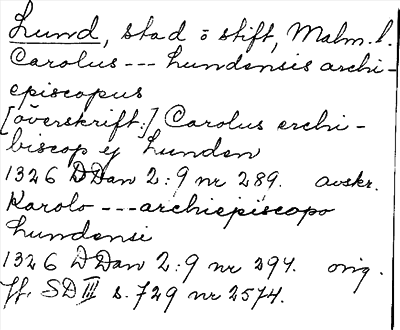 Lund, stad o stift, Malm. l.
Carolus --- Lundensis archi-
episcopus
[överskrift:] Carolus erchi-
biscop ey Lunden
1326 DDan 2:9 nr 289. avskr.
Karolo --- archiepiscopo
Lundensi
1326 DDan 2:9 nr 294. orig.
Jf. SD III s. 729 nr 2574.